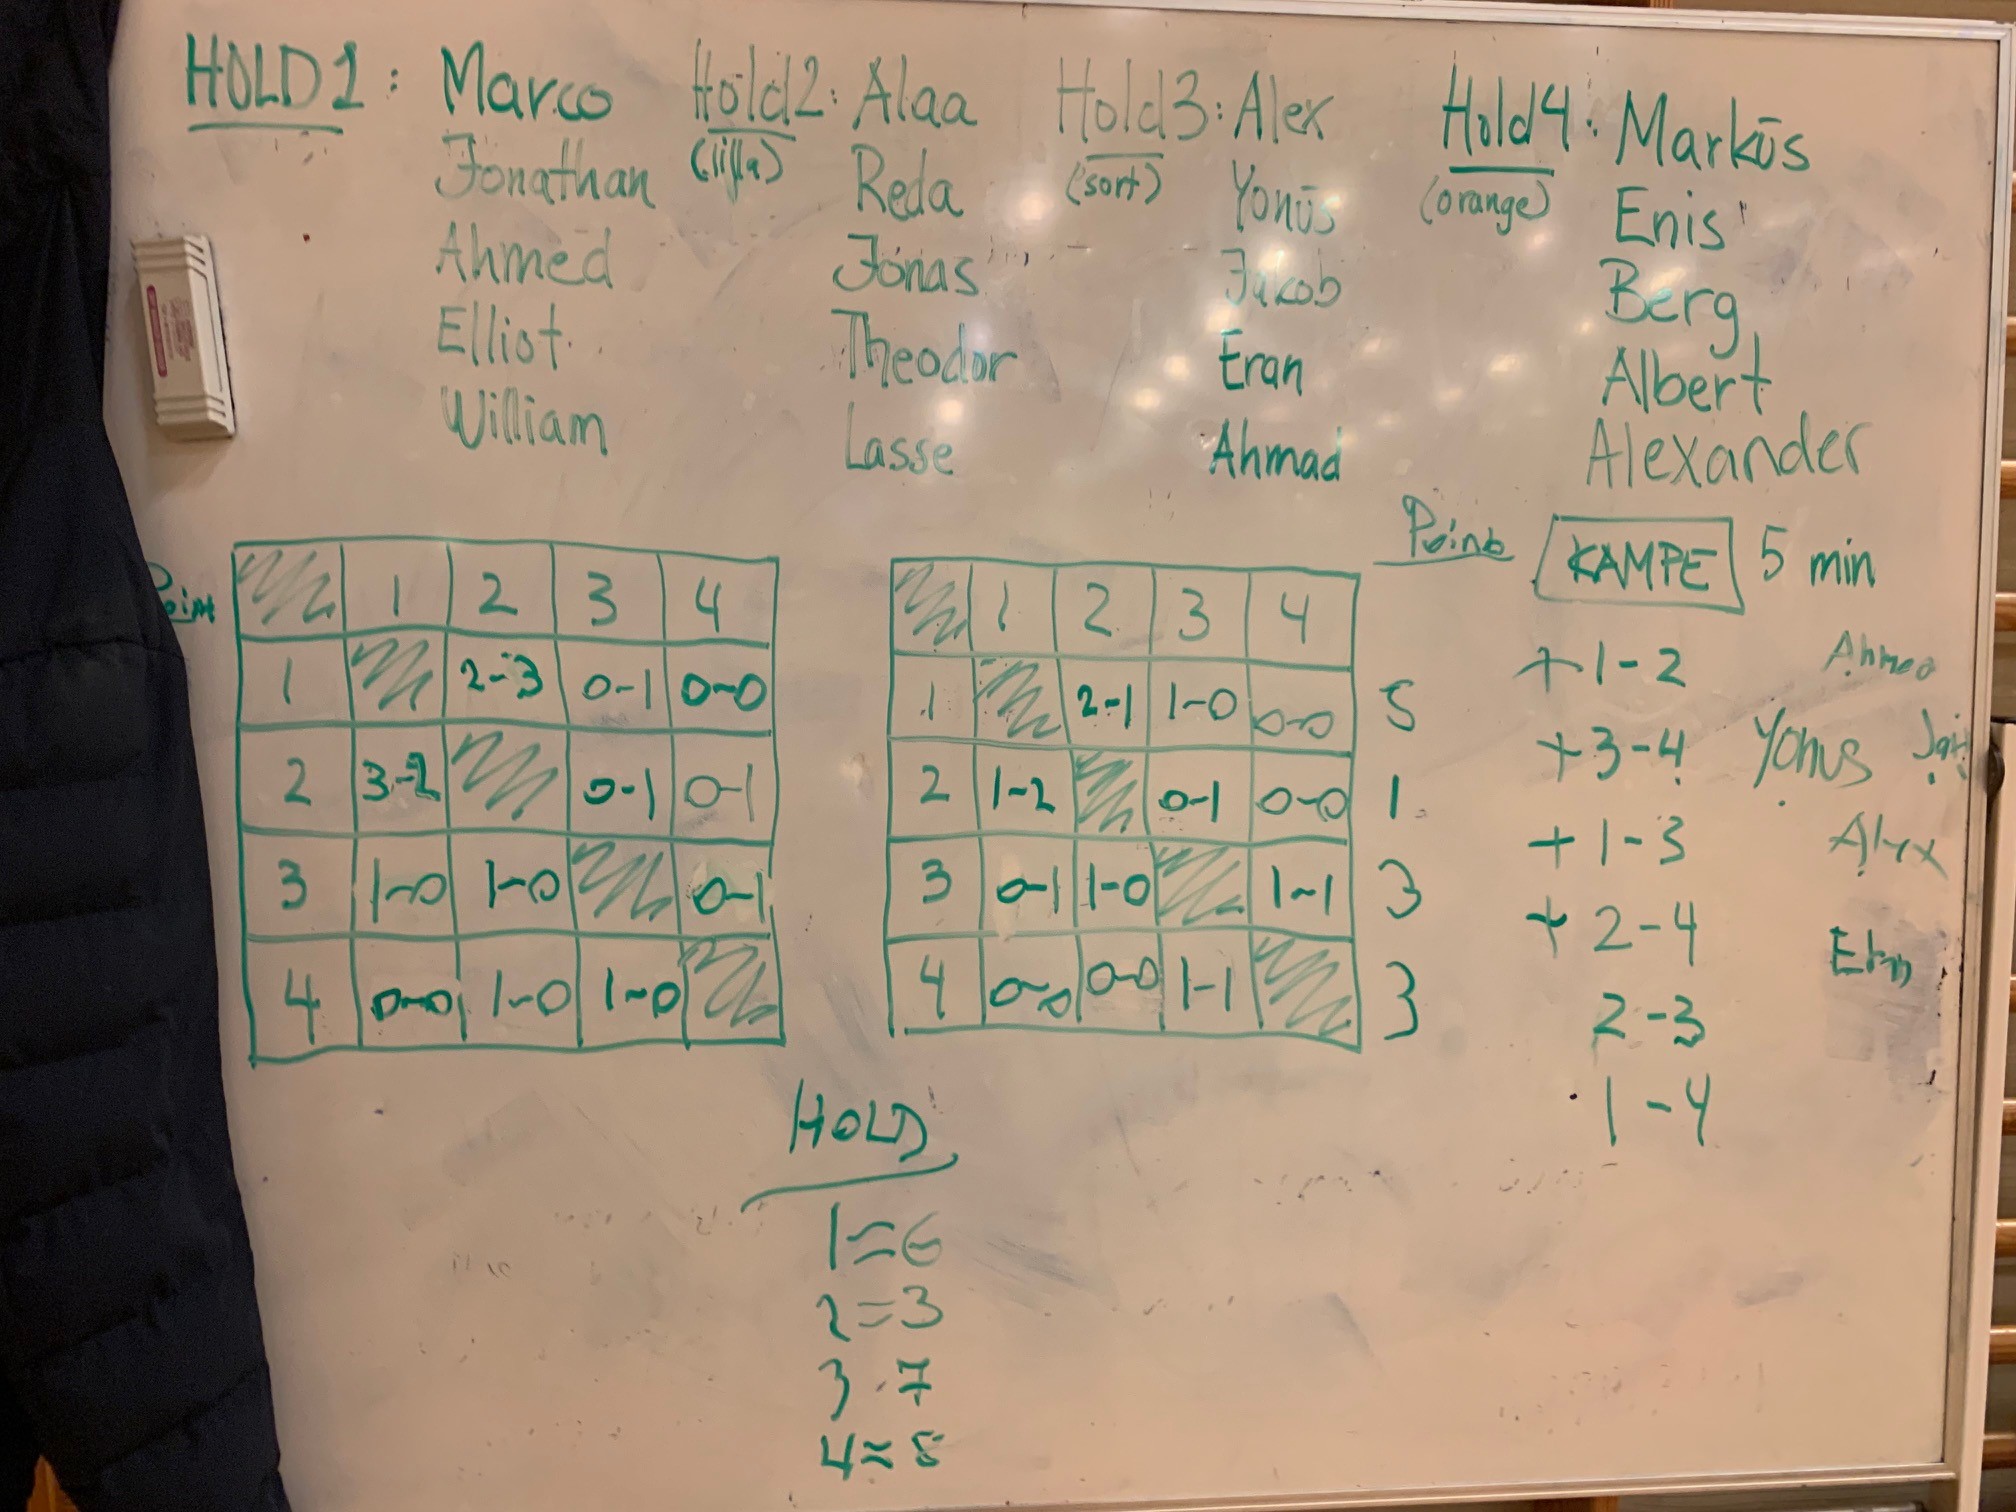 HOLD 1: Marco
Jonathan
Ahmed
Elliot
William
Hold2: Alaa
(lilla)
Reda
Jonas
Theodor
Lasse
Hold3: Alex
(sort)
Yonus
Jakob
Eran
Ahmad
Hold4: Markus
(orange)
Enis
Berg
Albert
Alexander
Point
1 2 3 4
1 2-3 0-1 0-0
2 3-2 0-1 0-1
3 1-0 1-0 0-1
4 0-0 1-0 1-0
Point
1 2 3 4
1 2-1 1-0 0-0 5
2 1-2 0-1 0-0 1
3 0-1 1-0 1-1 3
4 0-0 0-0 1-1 3
KAMPE 5 min
+ 1-2
+ 3-4
+ 1-3
+ 2-4
2-3
1-4
Ahmed
Yonus
Alex
Eran
HOLD
1=6
2=3
3 7
4=8